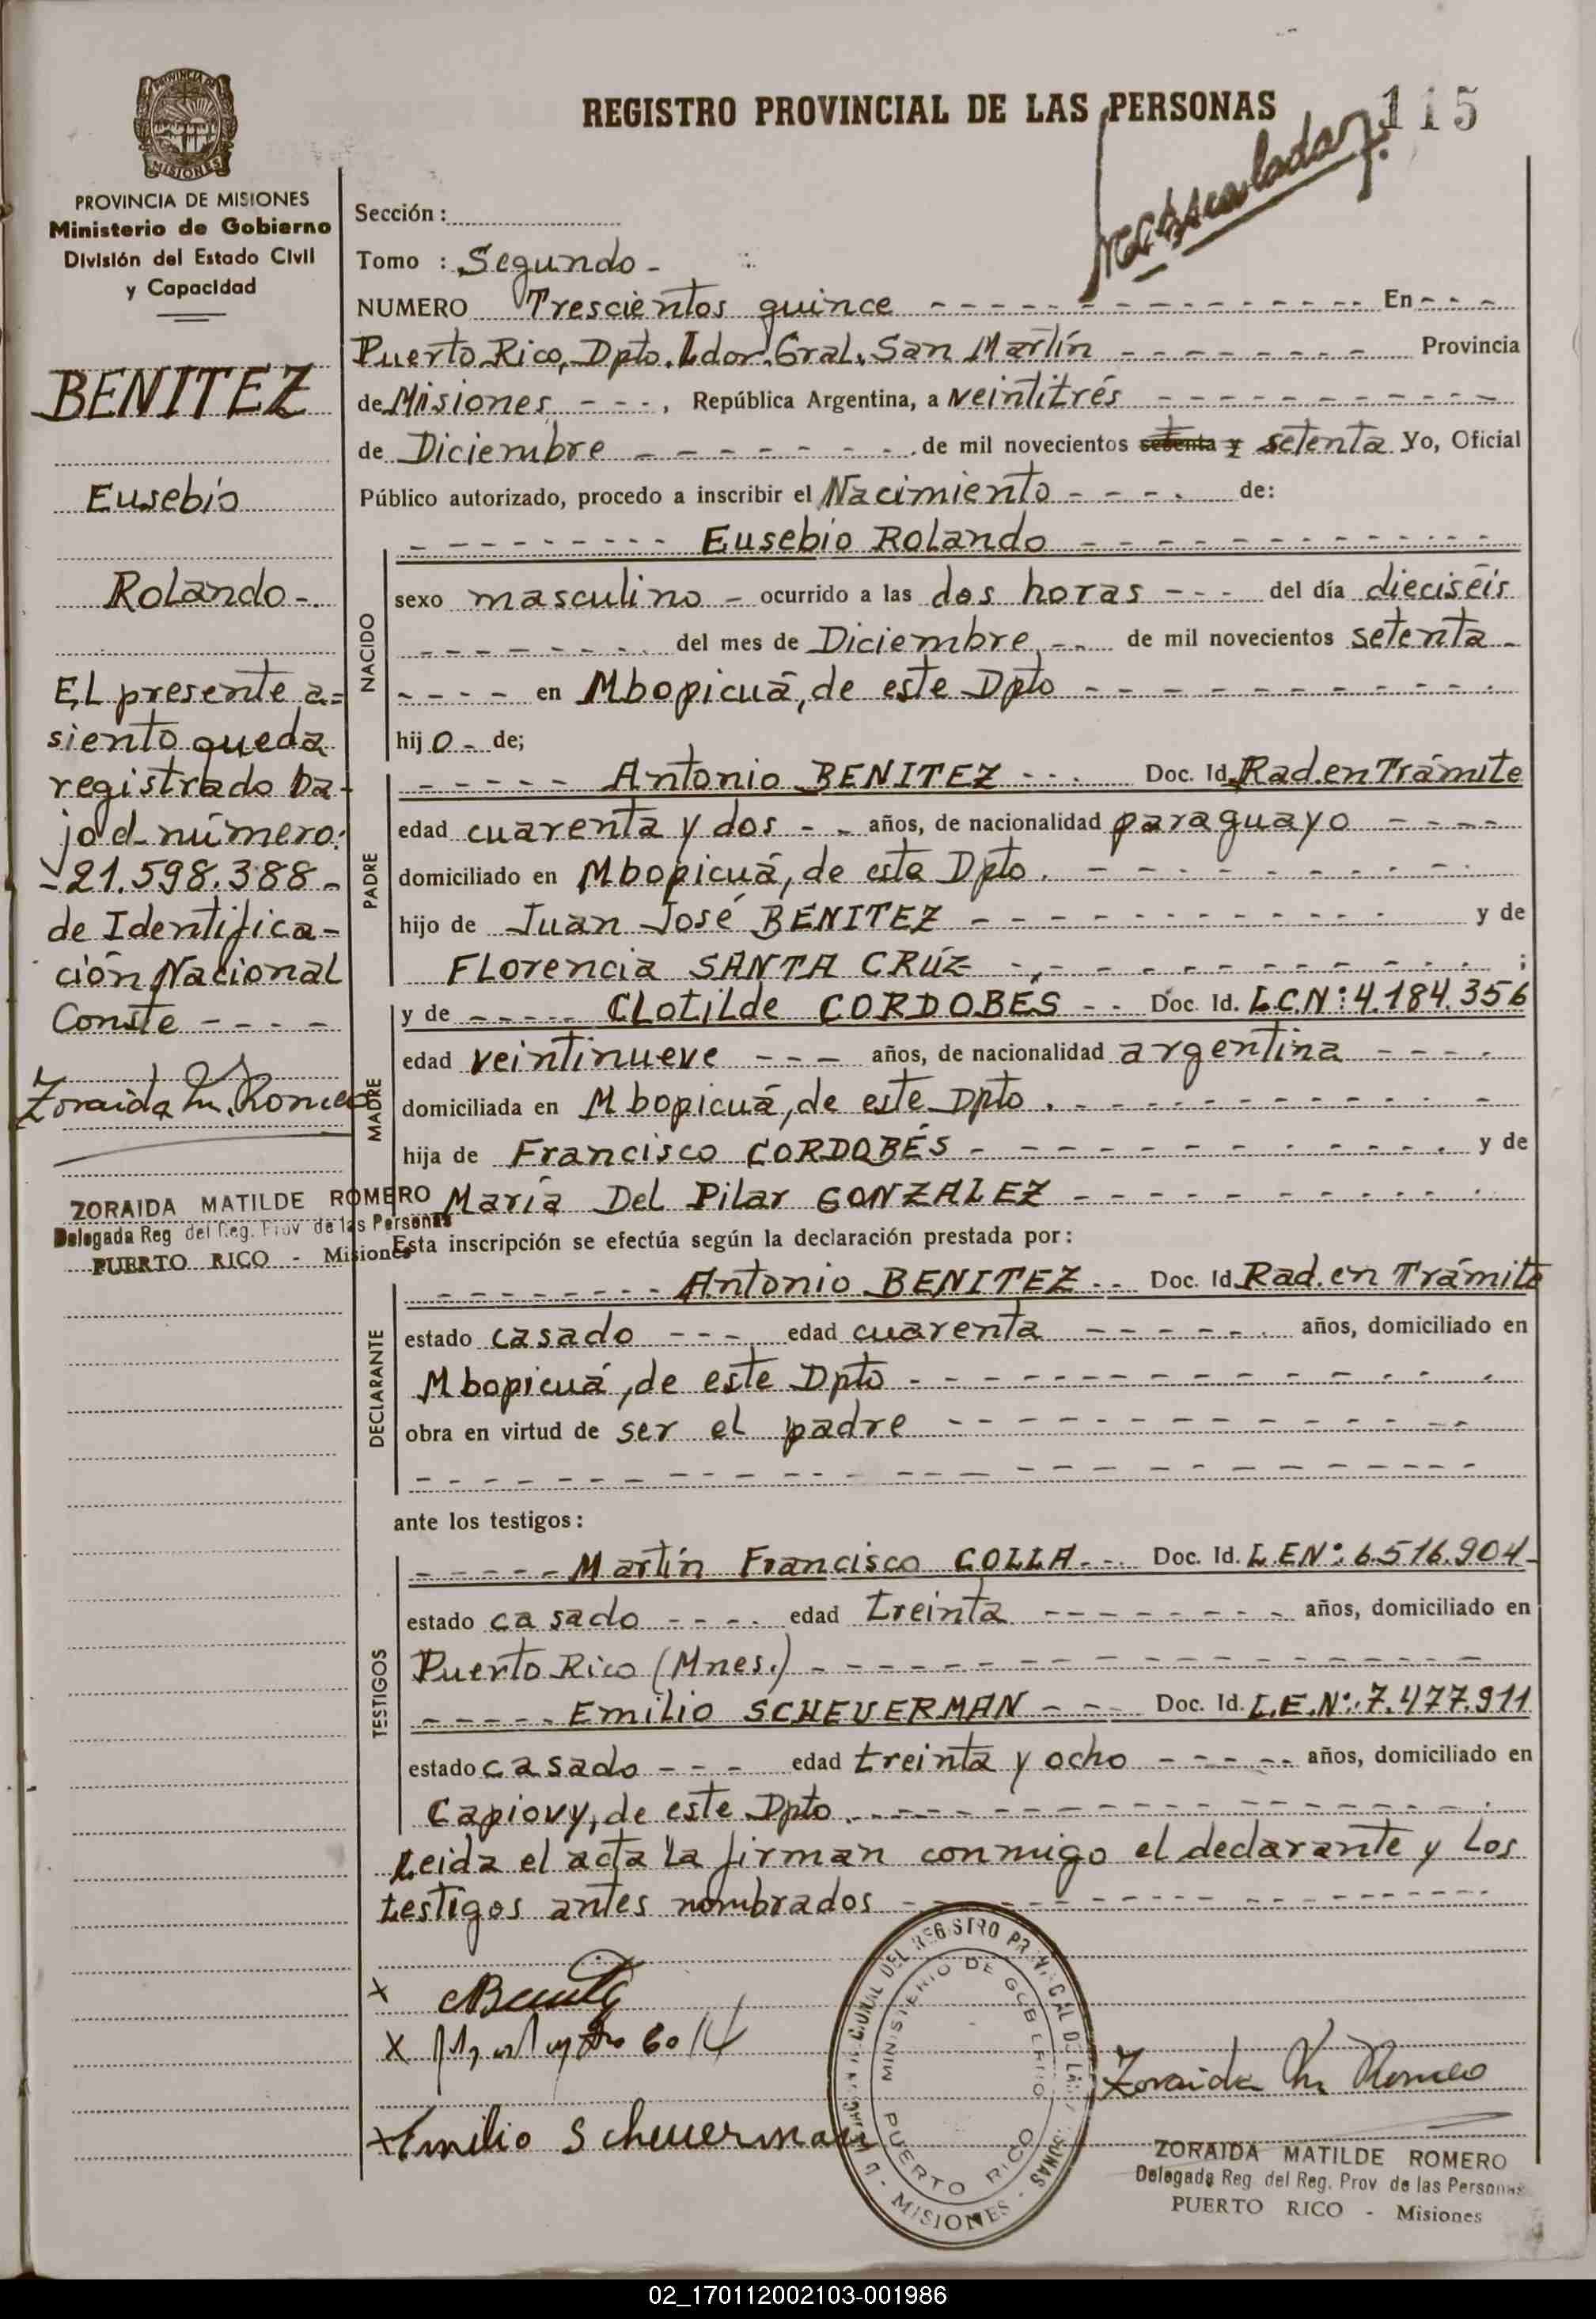 REGISTRO PROVINCIAL DE LAS PERSONAS
115
PROVINCIA DE MISIONES
MISIONES
PROVINCIA DE MISIONES
Ministerio de Gobierno
División del Estado Civil
y Capacidad
BENITEZ
Eusebio
Rolando-
El presente a=
siento queda
registrado ba-
jo el número:
-21.598.388-
de Identifica-
ción Nacional
Conste - - - -
Zoraida M. Romero
ZORAIDA MATILDE ROMERO
Delegada Reg del Reg. Prov de las Personas
PUERTO RICO - Misiones
Sección:
Tomo : Segundo-
NUMERO Trescientos quince - - - En - - -
Puerto Rico, Dpto. Ldor. Gral. San Martín - - - Provincia
de Misiones - - -, República Argentina, a veintitrés - - -
de Diciembre - - - de mil novecientos setenta y setenta Yo, Oficial
Público autorizado, procedo a inscribir el Nacimiento - - - . de:
NACIDO
- - - Eusebio Rolando - - -
sexo masculino - ocurrido a las dos horas - - - del día dieciséis
- - - del mes de Diciembre - - de mil novecientos setenta -
- - - - en Mbopicuá, de este Dpto - - -
hijo - de;
PADRE
- - - Antonio BENITEZ - - - Doc. Id. Rad. en Trámite
edad cuarenta y dos - - años, de nacionalidad paraguayo - - - -
domiciliado en Mbopicuá, de este Dpto. - - -
hijo de Juan José BENITEZ - - - y de
Florencia SANTA CRUZ - - - ;
MADRE
y de - - - Clotilde CORDOBÉS - - Doc. Id. L.C.Nº: 4.184.356
edad veintinueve - - - años, de nacionalidad argentina - - - -
domiciliada en Mbopicuá, de este Dpto. - - -
hija de Francisco CORDOBÉS - - - y de
María Del Pilar GONZALEZ - - -
Esta inscripción se efectúa según la declaración prestada por:
DECLARANTE
- - - Antonio BENITEZ - - Doc. Id. Rad. en Trámite
estado casado - - - edad cuarenta - - - años, domiciliado en
Mbopicuá, de este Dpto - - -
obra en virtud de ser el padre - - -
- - -
ante los testigos:
TESTIGOS
- - - Martín Francisco COLLA - - - Doc. Id. L.E.Nº: 6.516.904-
estado casado - - - - edad treinta - - - años, domiciliado en
Puerto Rico (Mnes.) - - -
- - - Emilio SCHEUERMAN - - - Doc. Id. L.E.Nº: 7.477.911
estado casado - - - edad treinta y ocho - - - años, domiciliado en
Capiovy, de este Dpto. - - -
Leida el acta la firman conmigo el declarante y los
testigos antes nombrados - - -
x ABenitez
x
x Emilio Scheuerman
Zoraida M Romero
DEL REGISTRO PROVINCIAL DE LAS PERSONAS
MINISTERIO DE GOBIERNO
PUERTO RICO
- MISIONES -
ZORAIDA MATILDE ROMERO
Delegada Reg. del Reg. Prov de las Personas
PUERTO RICO - Misiones
02_170112002103-001986